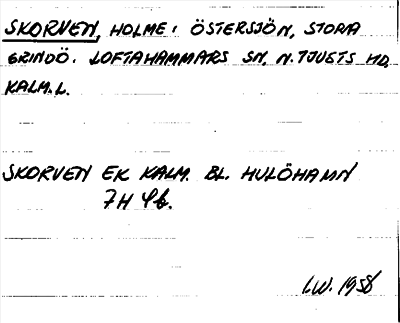 SKORVEN, HOLME I ÖSTERSJÖN, STORA
GRINDÖ. LOFTAHAMMARS SN, N. TJUSTS HD,
KALM. L.
SKORVEN EK KALM. BL. HULÖHAMN
7H 4b.
I.W. 1958